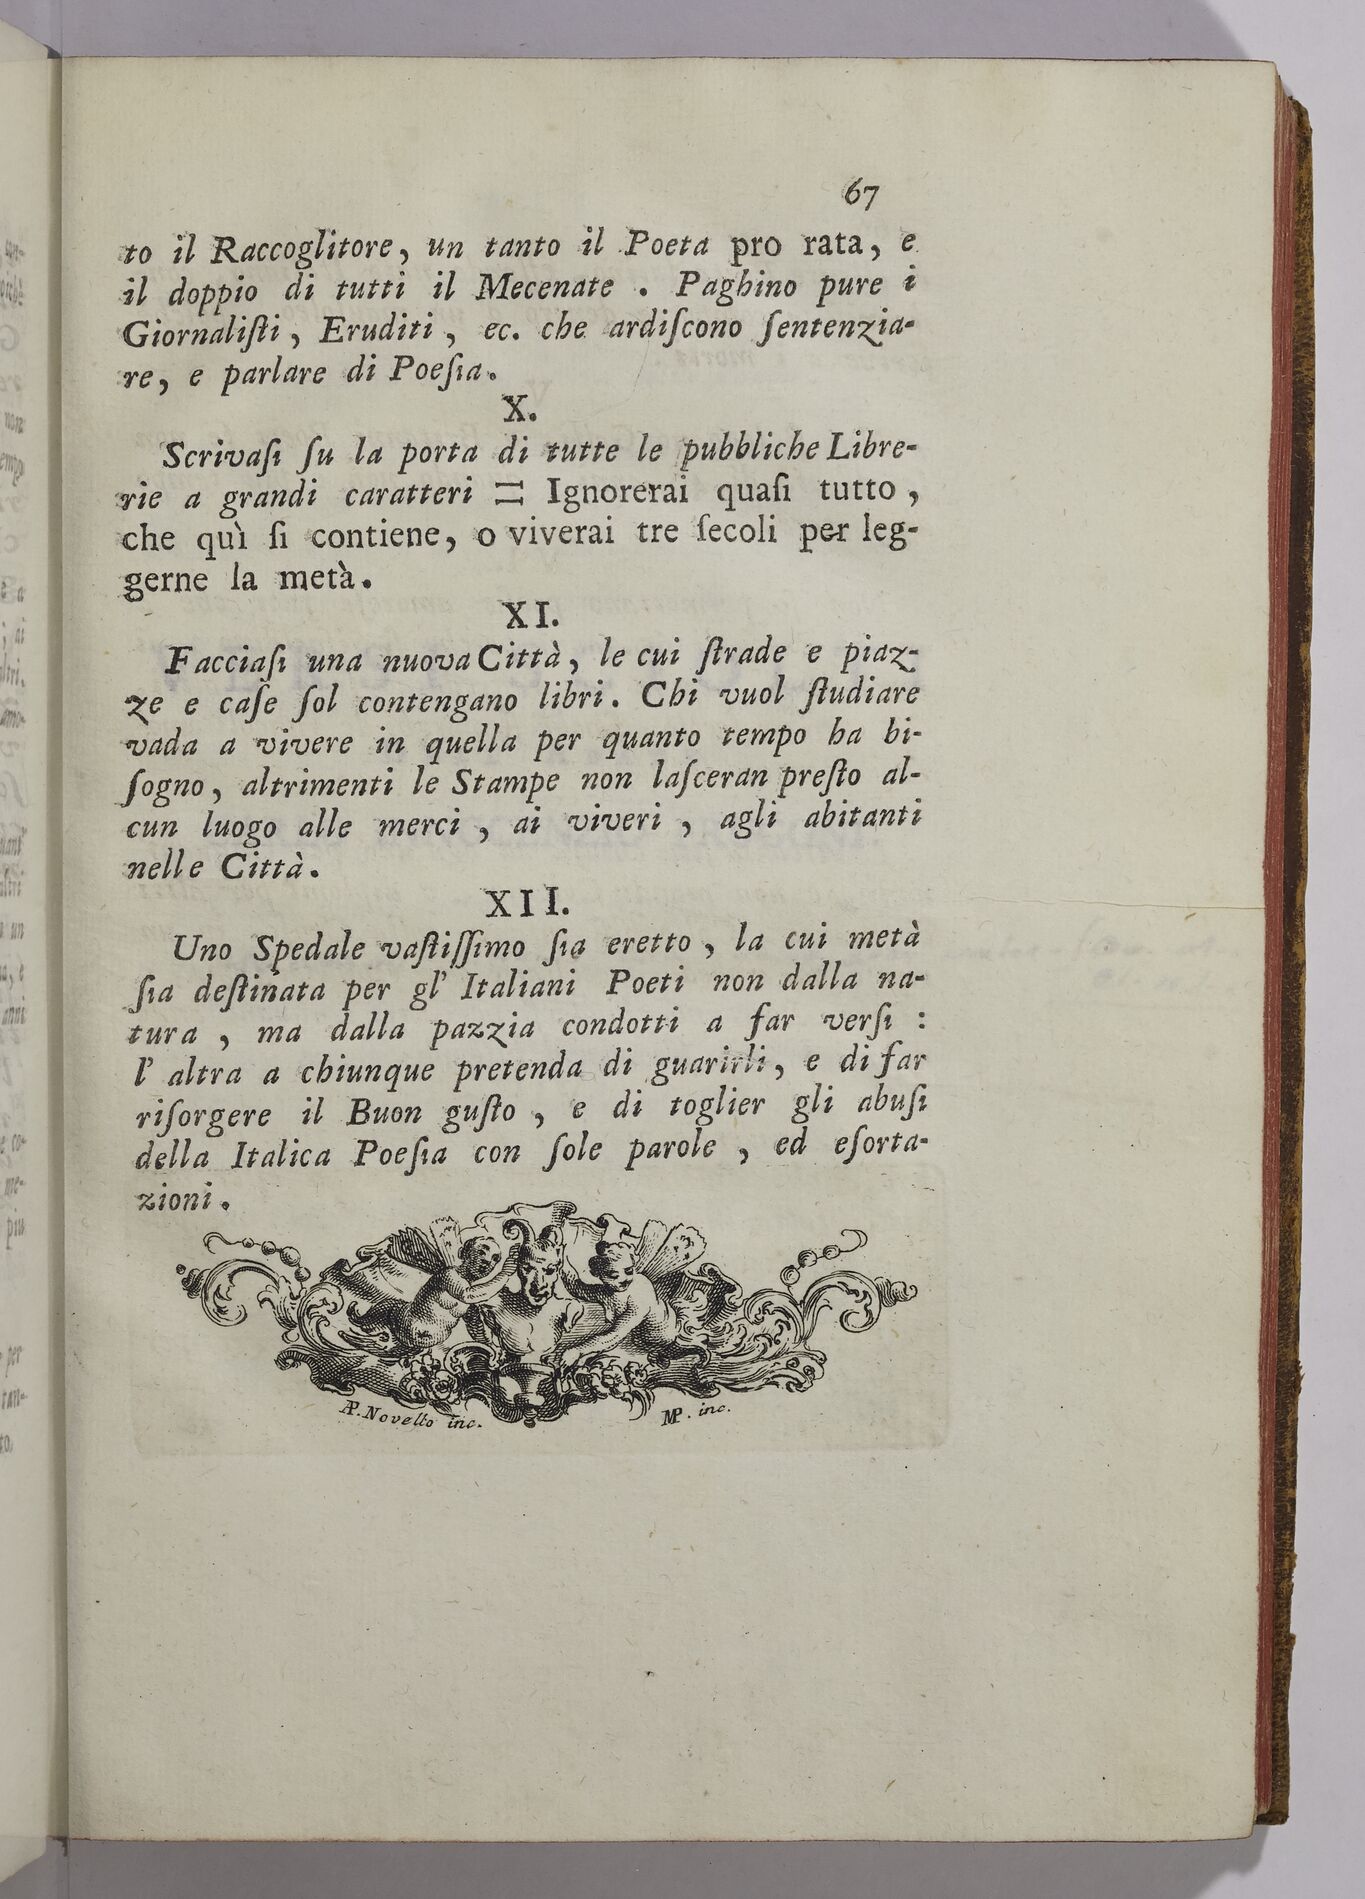 67
to il Raccoglitore, un tanto il Poeta pro rata, e
il doppio di tutti il Mecenate . Paghino pure i
Giornaliſti, Eruditi, ec. che ardiſcono ſentenzia-
re, e parlare di Poeſia.
X.
Scrivaſi ſu la porta di tutte le pubbliche Libre-
rie a grandi caratteri = Ignorerai quaſi tutto,
che quì ſi contiene, o viverai tre ſecoli per leg-
gerne la metà.
XI.
Facciaſi una nuova Città, le cui ſtrade e piaz-
ze e caſe ſol contengano libri. Chi vuol ſtudiare
vada a vivere in quella per quanto tempo ha bi-
ſogno, altrimenti le Stampe non laſceran preſto al-
cun luogo alle merci, ai viveri, agli abitanti
nelle Città.
XII.
Uno Spedale vaſtiſſimo ſia eretto, la cui metà
ſia deſtinata per gl' Italiani Poeti non dalla na-
tura, ma dalla pazzia condotti a far verſi :
l' altra a chiunque pretenda di guarirli, e di far
riſorgere il Buon guſto, e di toglier gli abuſi
della Italica Poeſia con ſole parole, ed eſorta-
zioni.
AP. Novello inc. MP. inc.